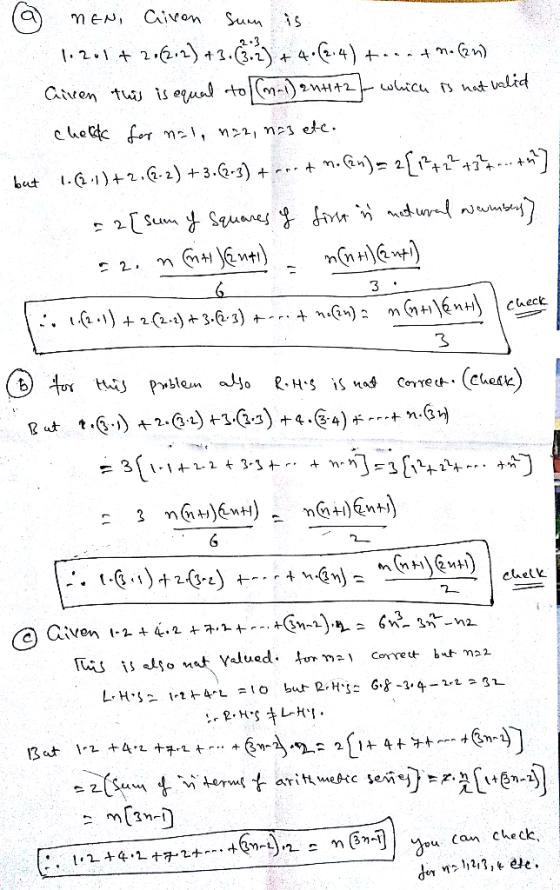 (a) n∈N, Given Sum is
1·2·1 + 2·(2·2) + 3·(3·2) + 4·(2·4) + ... + n·(2n)
2·3
Given this is equal to (n-1) 2n+1+2 which is not valid
check for n=1, n=2, n=3 etc.
but 1·(2·1) + 2·(2·2) + 3·(2·3) + ... + n·(2n) = 2[1²+2²+3²+...+n²]
= 2[sum of squares of first 'n' natural numbers]
= 2· n(n+1)(2n+1)/6 = n(n+1)(2n+1)/3.
∴ 1·(2·1) + 2(2·2) + 3·(2·3) + ... + n·(2n) = n(n+1)(2n+1)/3 check
(b) for this problem also R.H.S is not correct. (check)
But 1·(3·1) + 2·(3·2) + 3·(3·3) + 4·(3·4) + ... + n·(3n)
= 3{1·1+2·2+3·3+... + n·n} = 3{1²+2²+... +n²]
= 3 n(n+1)(2n+1)/6 = n(n+1)(2n+1)/2
∴ 1·(3·1) + 2·(3·2) + ... + n·(3n) = n(n+1)(2n+1)/2 check
(c) Given 1·2 + 4·2 + 7·2 + ... + (3n-2)·2 = 6n³-3n²-n2
This is also not valued. for n=1 correct but n=2
L.H.S = 1·2+4·2 = 10 but R.H.S = 6·8-3·4-2·2 = 32
∴ R.H.S ≠ L.H.S.
But 1·2 + 4·2 + 7·2 + ... + (3n-2)·2 = 2{1+4+7+...+(3n-2)]
= 2{sum of 'n' terms of arithmetic series} = 2·n/2[1+(3n-2)]
= n[3n-1]
∴ 1·2 + 4·2 + 7·2 + ... + (3n-2)·2 = n(3n-1) you can check.
for n=1,2,3,4 etc.